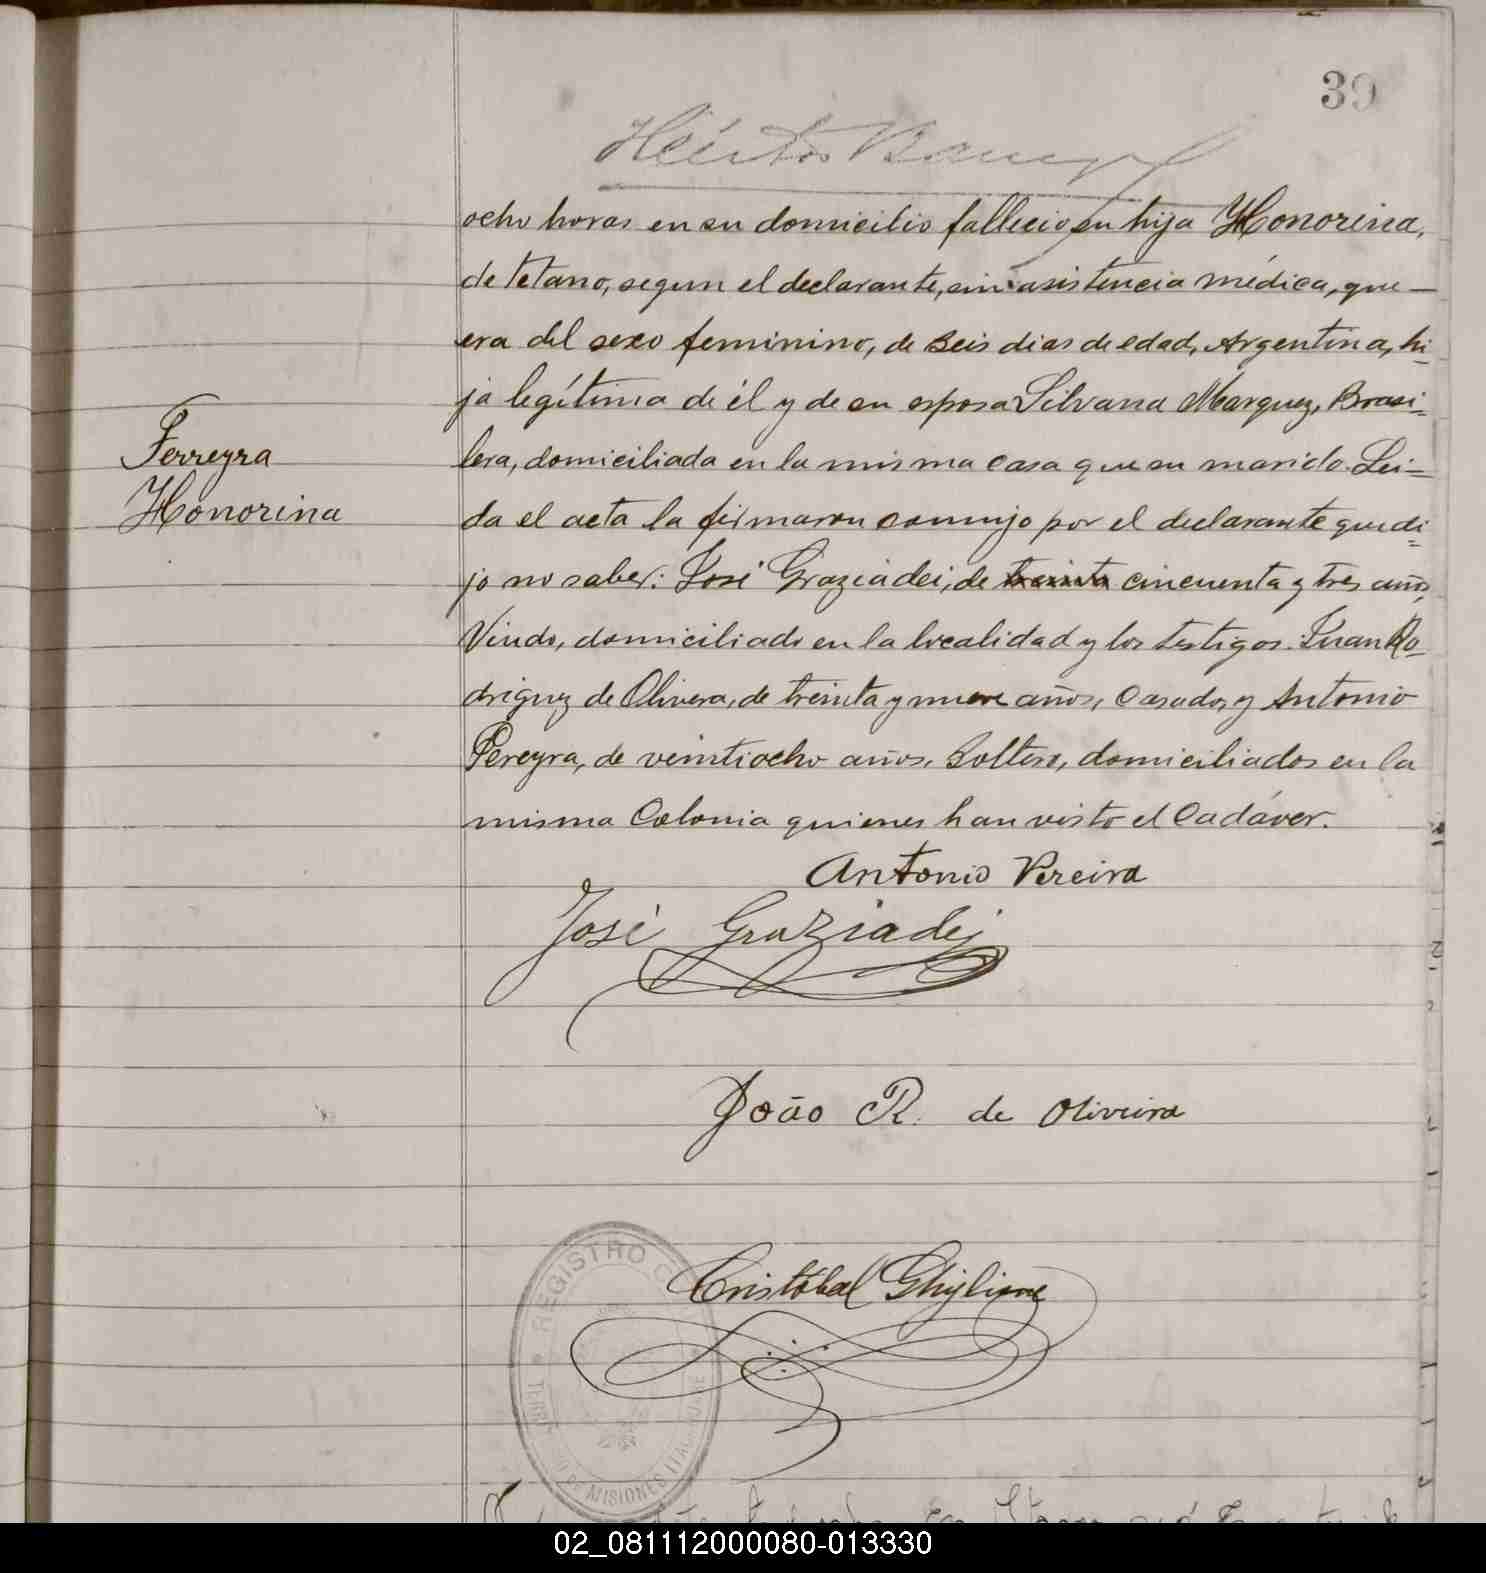 39
Héctor
ocho horas en su domicilio falleció su hija Honorina,
de tetano, segun el declarante, sin asistencia médica, que —
era del sexo feminino, de seis dias de edad, Argentina, hi=
ja legítima de él y de su esposa Silvana Marquez, Brasi=
lera, domiciliada en la misma casa que su marido. Lei=
Ferreyra
Honorina
da el acta la firmaron conmigo por el declarante que di=
jo no saber: José Graziadei, de treinta cincuenta y tres años,
Viudo, domiciliado en la localidad y los testigos: Juan Ro=
driguez de Olivera, de treinta y nueve años, Casado, y Antonio
Pereyra, de veintiocho años, Soltero, domiciliados en la
misma Colonia quienes han visto el Cadáver.
Antonio Pereira
José Graziadei
João R. de Oliveira
REGISTRO
Cristóbal Ghiglione
DE MISIONES
02_081112000080-013330